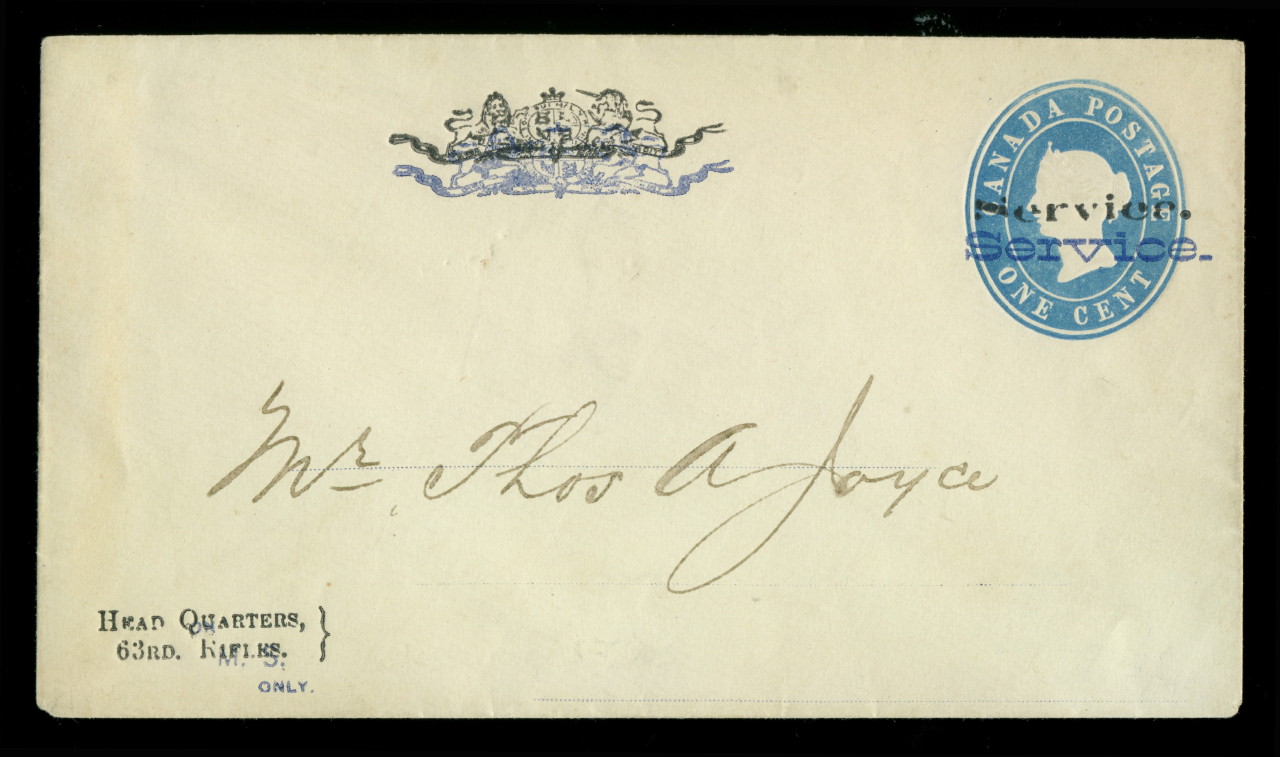 CANADA POSTAGE
Service.
Service.
ONE CENT
Mr Thos A Joyce
HEAD QUARTERS,
63RD. RIFLES.
ON
M. S.
ONLY.